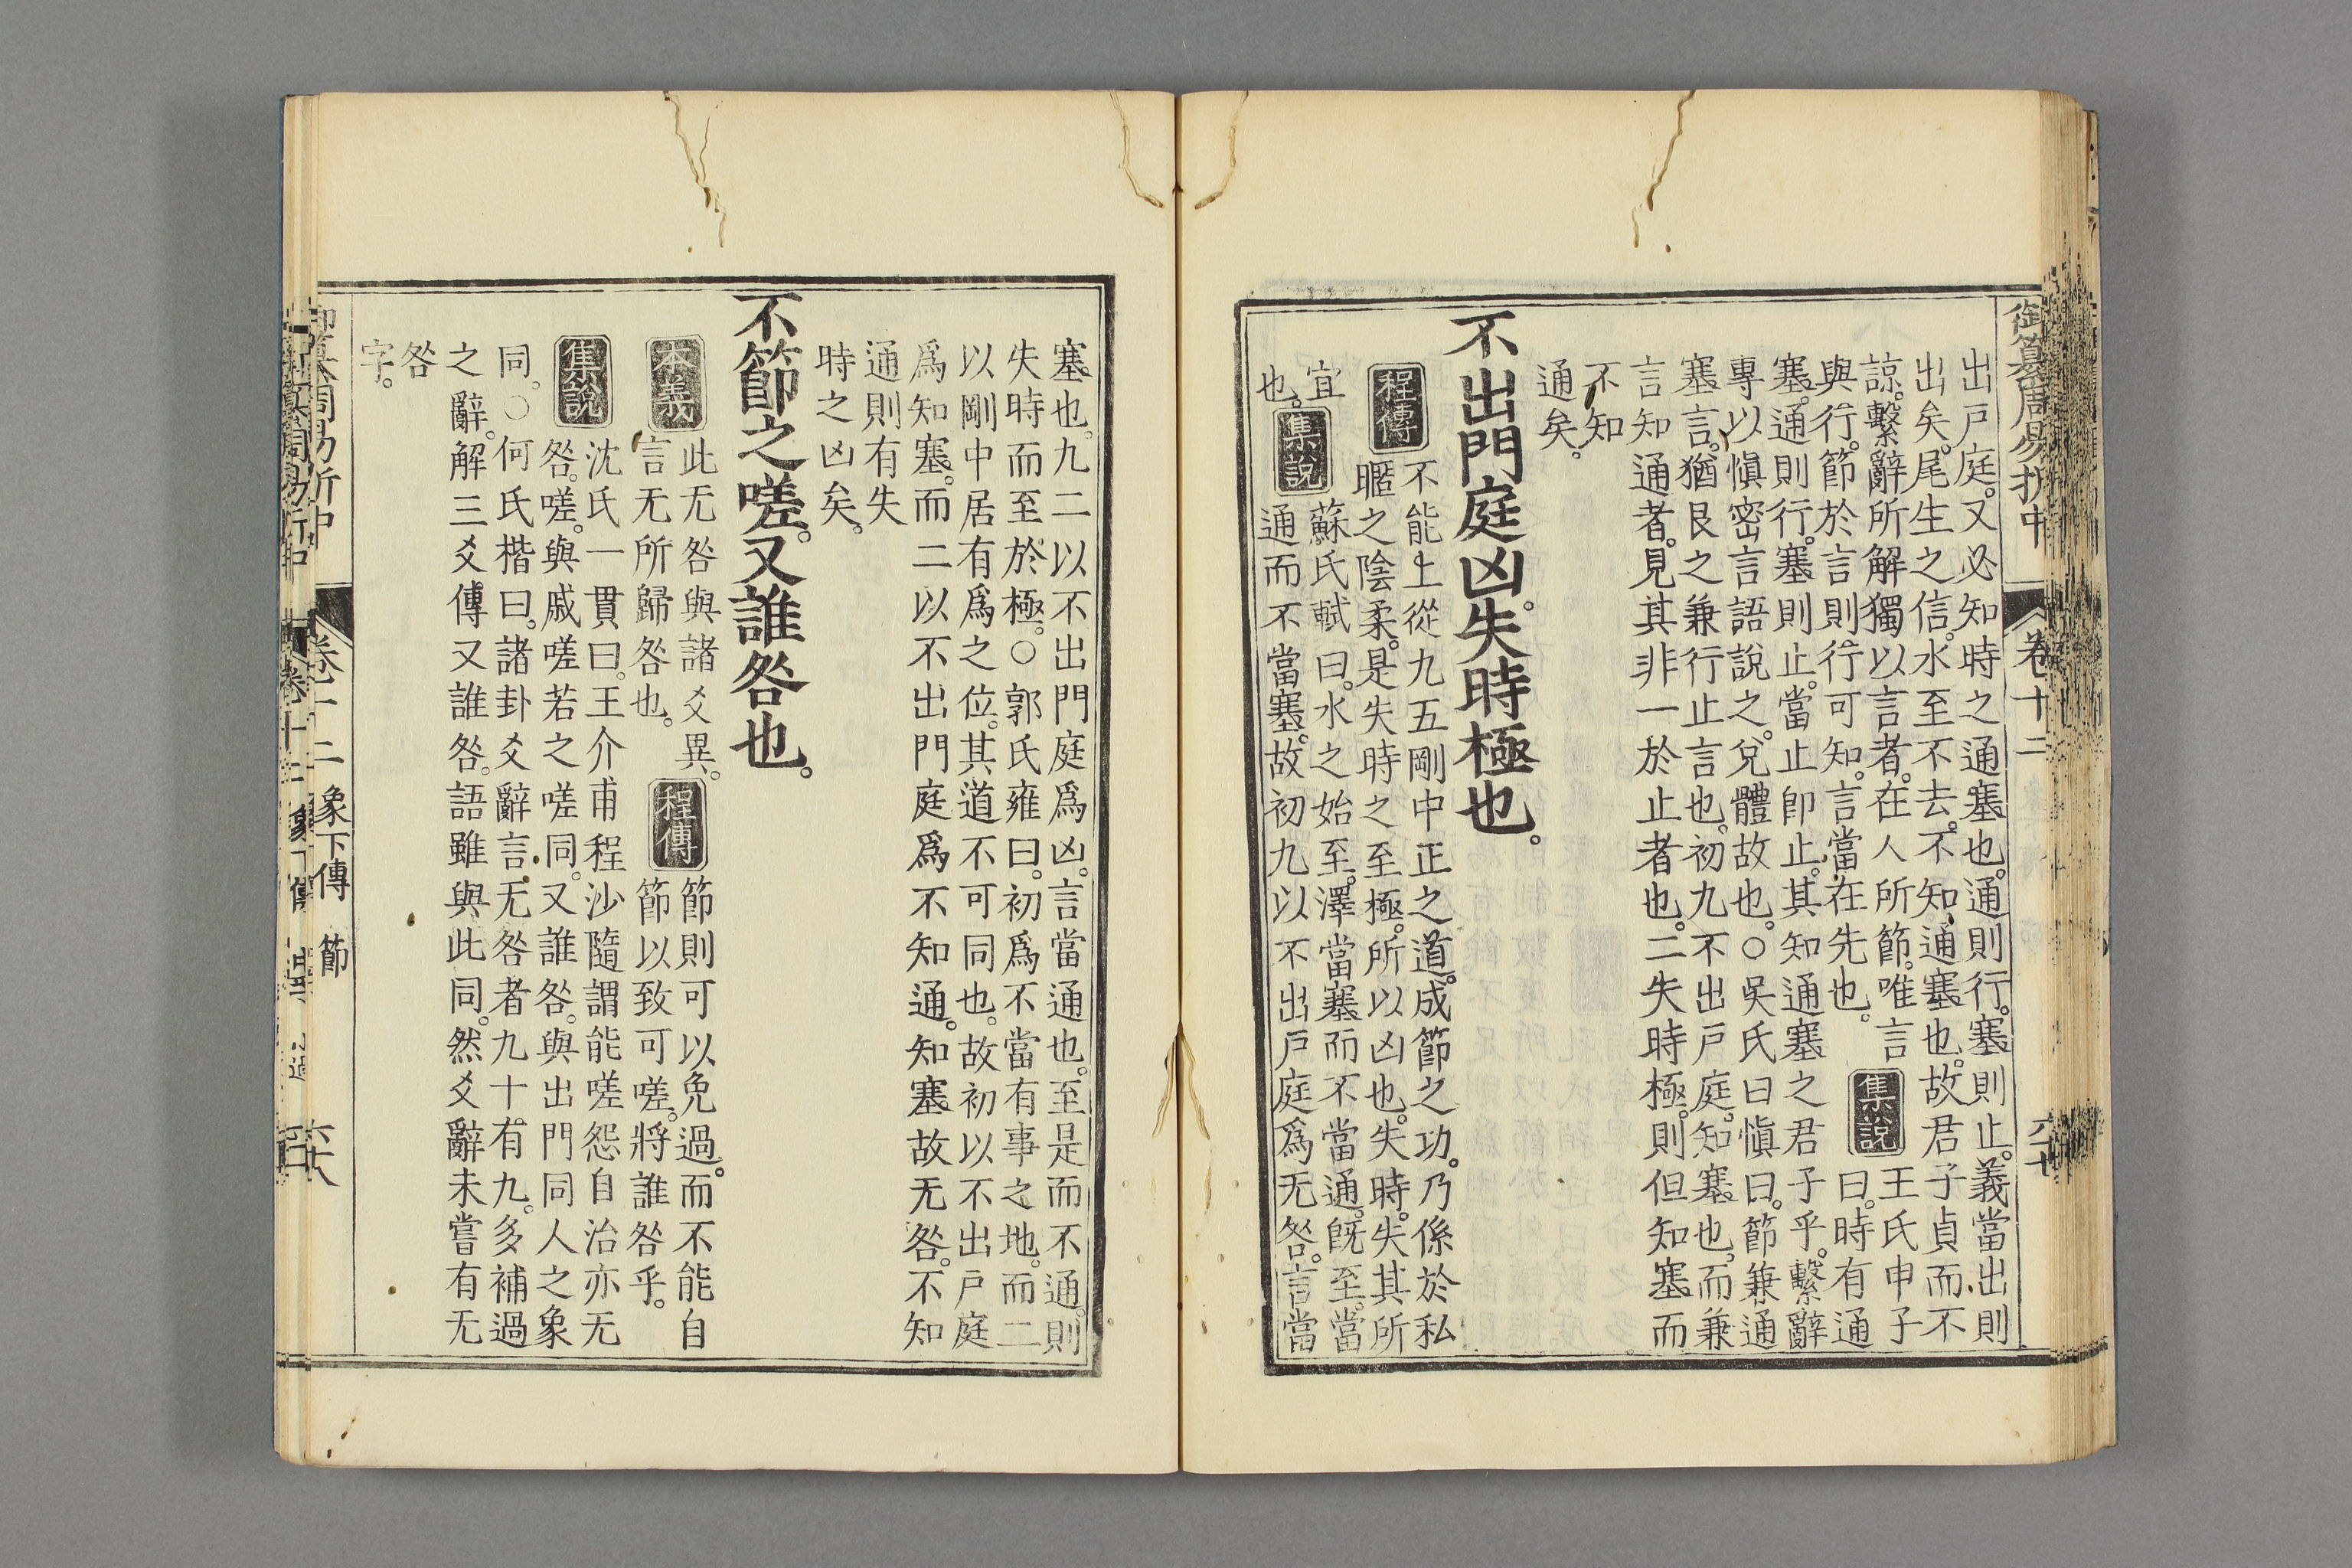 御纂周易折中 卷十二 六十
出戸庭。又必知時之通塞也。通則行。塞則止。義當出則
出矣。尾生之信。水至不去。不知通塞也。故君子貞而不
諒。繫辭所解獨以言者。在人所節。唯言
與行。節於言則行可知。言當在先也。
集說
王氏申子
曰。時有通
塞。通則行。塞則止。當止卽止。其知通塞之君子乎。繫辭
專以愼密言語說之。兌體故也。○吳氏曰愼曰。節兼通
塞言。猶艮之兼行止言也。初九不出戸庭。知塞也。而兼
言知通者。見其非一於止者也。二失時極。則但知塞而
不知
通矣。
不出門庭凶。失時極也。
程傳
不能上從九五剛中正之道。成節之功。乃係於私
暱之陰柔。是失時之至極。所以凶也。失時。失其所
宜
也。
集說
蘇氏軾曰。水之始至。澤當塞而不當通。旣至。當
通而不當塞。故初九以不出戸庭爲无咎。言當
塞也。九二以不出門庭爲凶。言當通也。至是而不通。則
失時而至於極。○郭氏雍曰。初爲不當有事之地。而二
以剛中居有爲之位。其道不可同也。故初以不出戸庭
爲知塞。而二以不出門庭爲不知通。知塞故无咎。不知
通則有失
時之凶矣。
不節之嗟。又誰咎也。
本義
此无咎與諸爻異。
言无所歸咎也。
程傳
節則可以免過。而不能自
節以致可嗟。將誰咎乎。
集說
沈氏一貫曰。王介甫程沙隨謂能嗟怨自治亦无
咎。嗟。與戚嗟若之嗟同。又誰咎。與出門同人之象
同。○何氏楷曰。諸卦爻辭言无咎者九十有九。多補過
之辭。解三爻傳又誰咎。語雖與此同。然爻辭未嘗有无
咎
字。
卷十二 象下傳 節